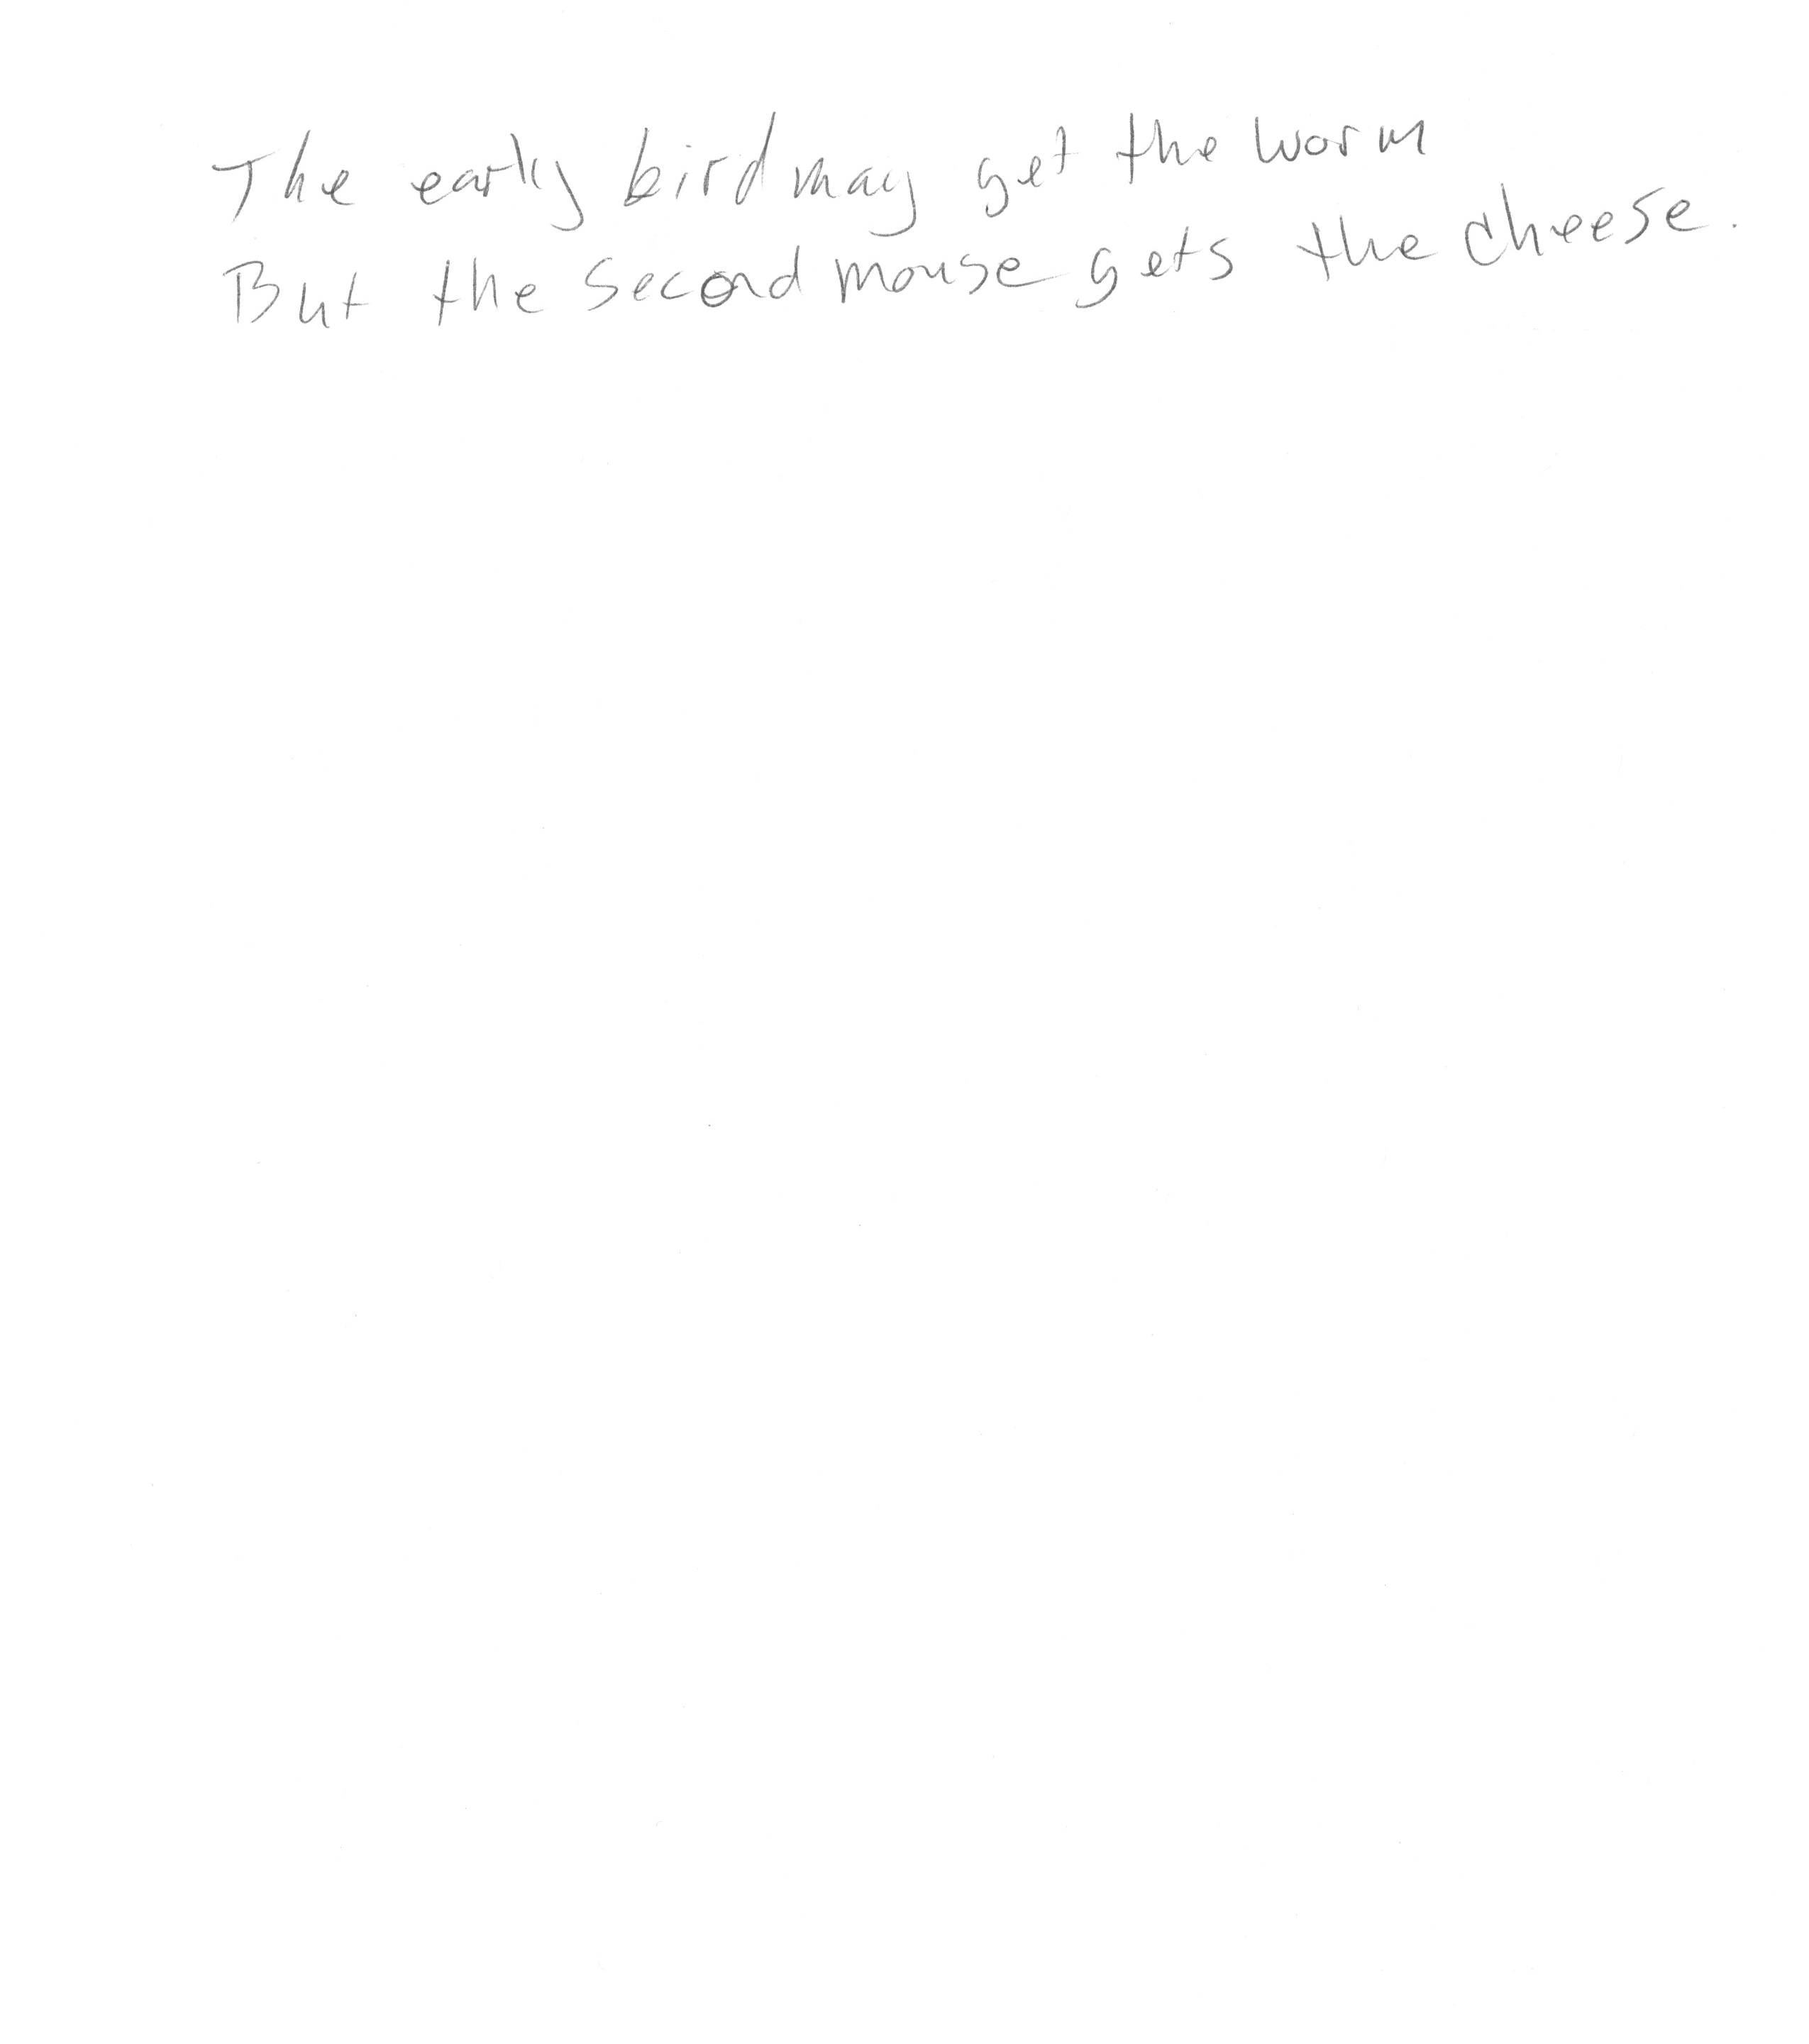 The early bird may get the worm
But the second mouse gets the cheese.